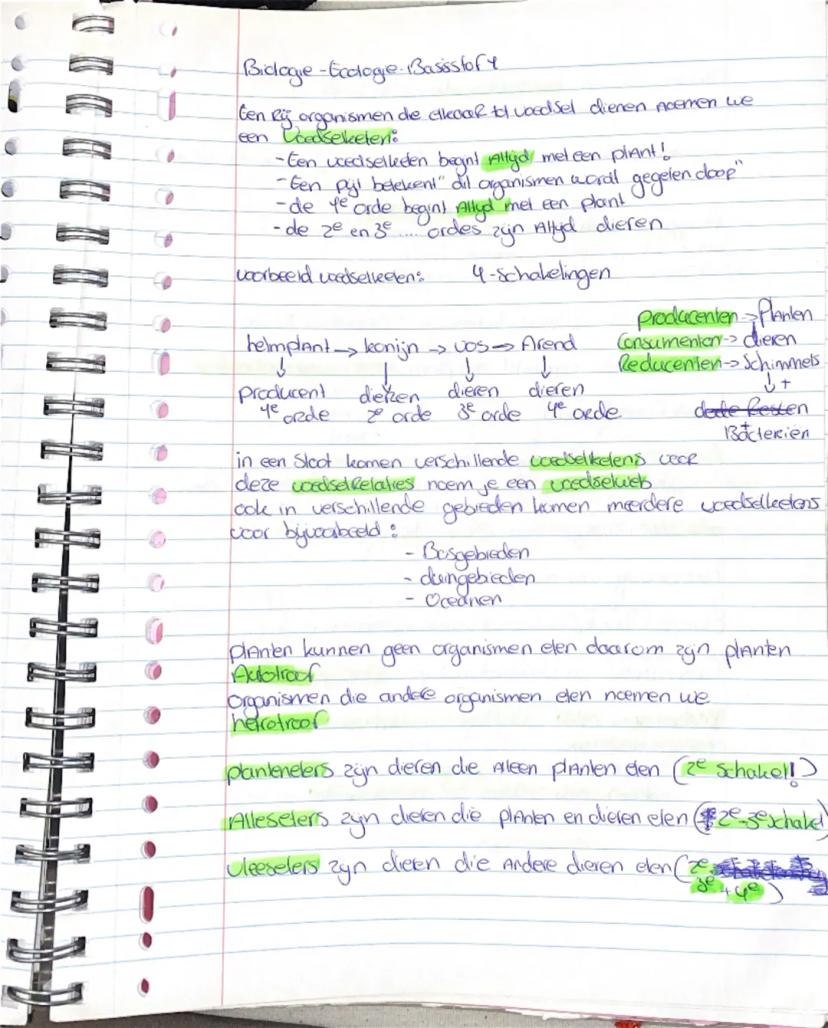 Biologie - Ecologie - Basisstof 4
Een rij organismen die elkaar tot voedsel dienen noemen we
een voedselketen:
- Een voedselketen begint Altijd met een plant!
- Een pijl betekent "dit organismen wordt gegeten door"
- de 1e orde begint Altijd met een plant
- de 2e en 3e .... ordes zijn Altijd dieren
voorbeeld voedselketen: 4-schakelingen
Producenten -> Planten
Consumenten -> dieren
Reducenten -> Schimmels
+
dode Resten
+
Bacteriën
helmplant -> konijn -> vos -> Arend
producent dieren dieren dieren
1e orde 2e orde 3e orde 4e orde
in een Sloot komen verschillende voedselketens voor
deze voedselrelaties noem je een voedselweb
ook in verschillende gebieden komen meerdere voedselketens
voor bijvoorbeeld:
- Bosgebieden
- duingebieden
- Oceanen
planten kunnen geen organismen eten daarom zijn planten
Autotroof
organismen die andere organismen eten noemen we
hetrotroof
planteneters zijn dieren die Alleen planten eten (2e schakel!)
Alleseters zijn dieren die planten en dieren eten (2e-3e schakel)
vleeseters zijn dieren die Andere dieren eten (2e
3e + 4e)